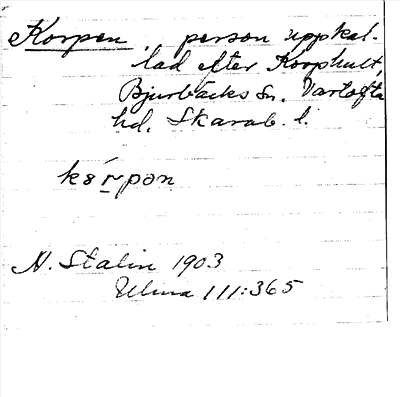 Korpen, person uppkal-
lad efter Korphult,
Bjurbäcks sn. Vartofta
hd. Skarab. l.
N. Stalin 1903
Ulma 111:365